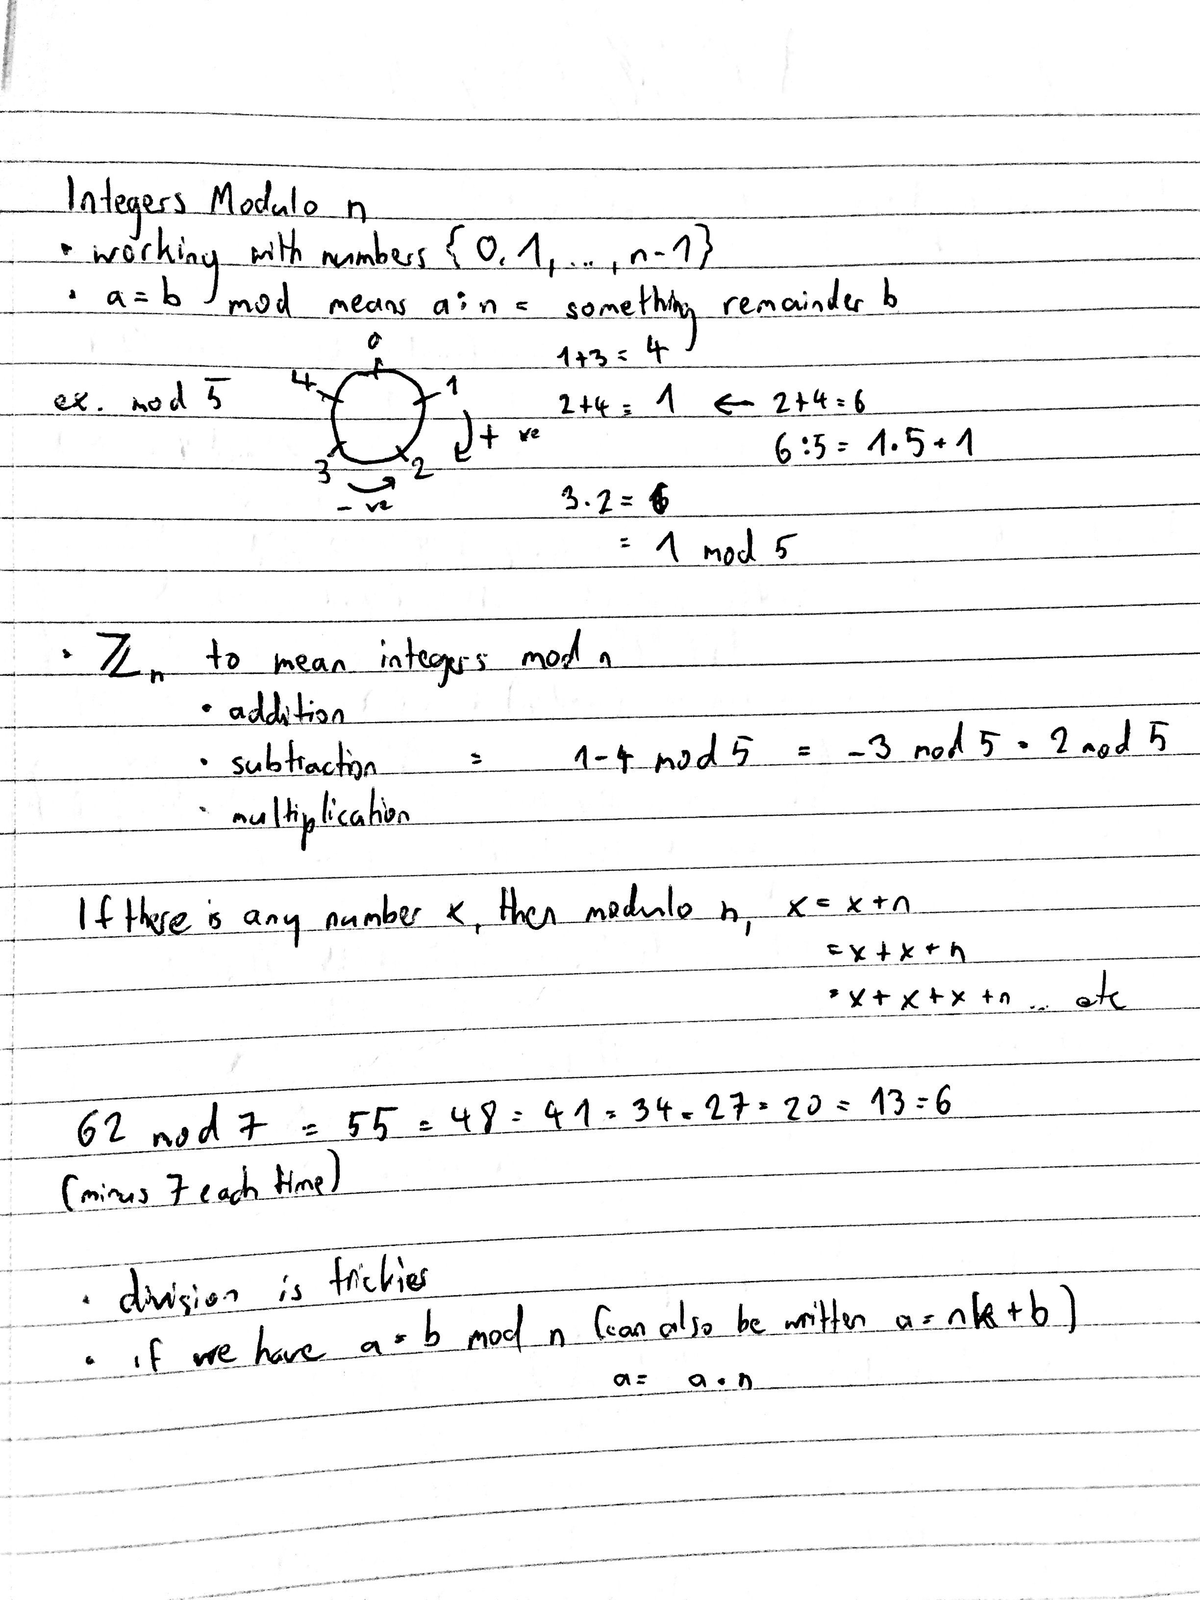 Integers Modulo n
• working with numbers {0, 1, ..., n-1}
• a = b mod means a : n = something remainder b
0
1+3 = 4
4
1
ex. mod 5
2+4 = 1 ← 2+4 = 6
+ ve
6:5 = 1·5+1
3
2
- ve
3·2 = 6
= 1 mod 5
• ℤn to mean integers mod n
• addition
• subtraction = 1-4 mod 5 = -3 mod 5 = 2 mod 5
• multiplication
If there is any number x, then modulo n, x = x+n
= x+x+n
= x+x+x+n ... etc
62 mod 7 = 55 = 48 = 41 = 34 = 27 = 20 = 13 = 6
(minus 7 each time)
• division is trickies
• if we have a = b mod n (can also be written a = nk+b)
a = a · n